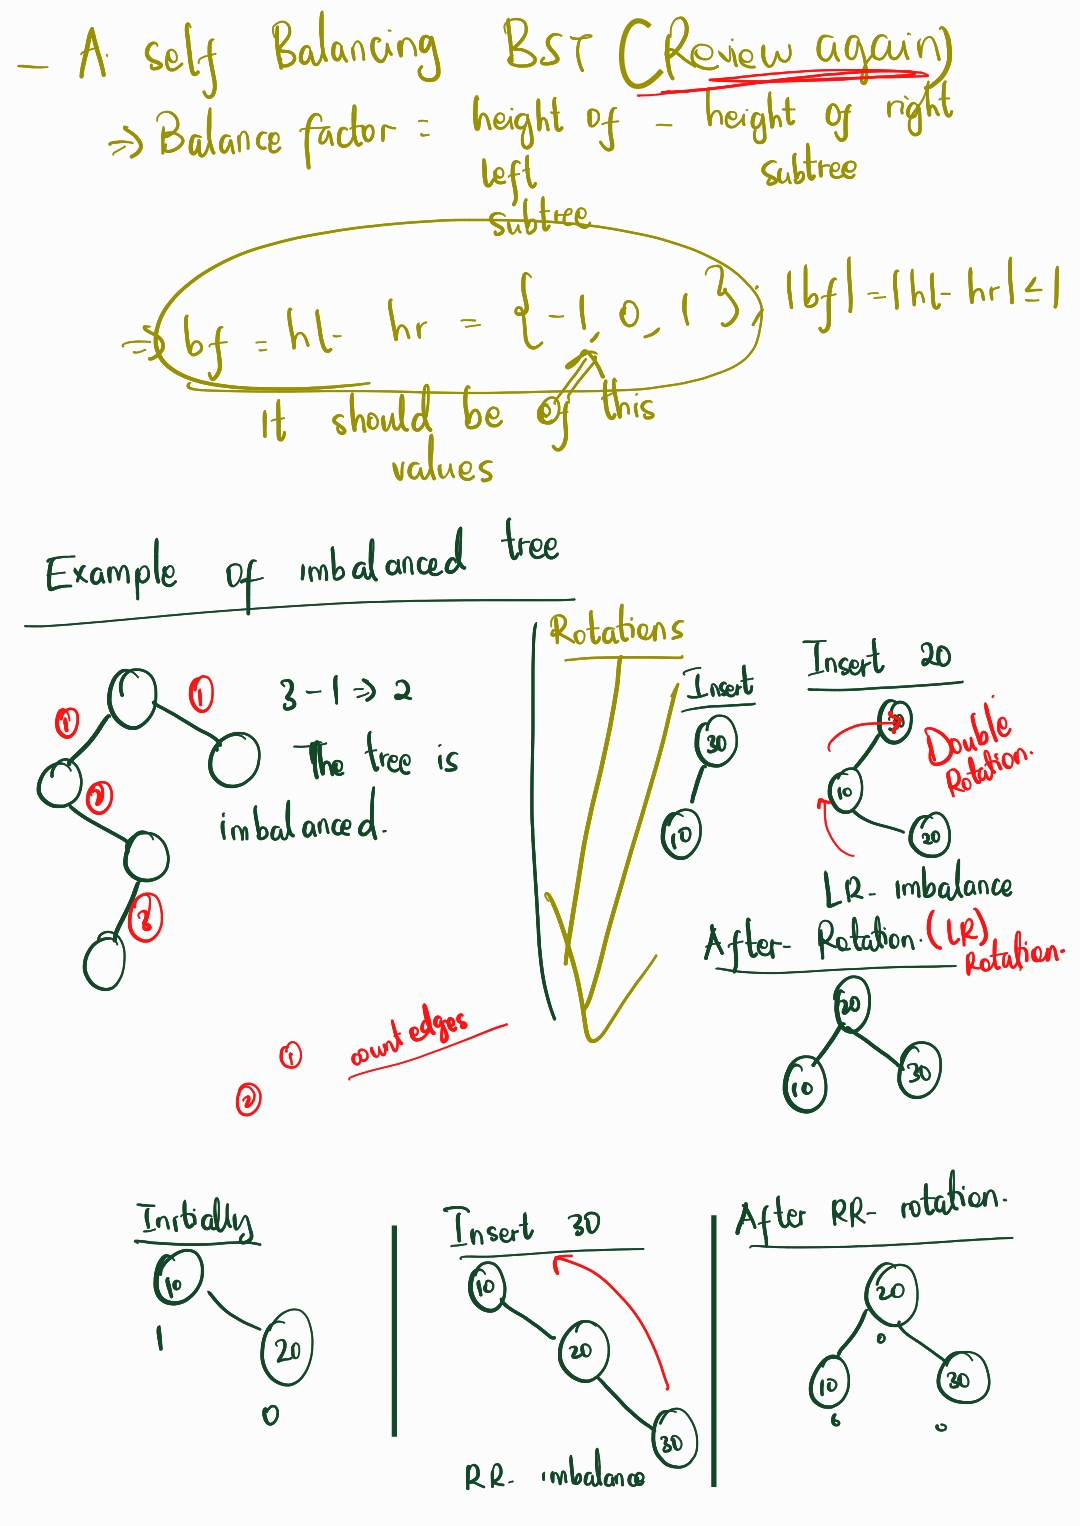 - A self Balancing BST (Review again)
⇒ Balance factor = height of left subtree - height of right subtree
⇒ bf = hl - hr = {-1, 0, 1}; |bf| = |hl - hr| ≤ 1
It should be of this values
Example of imbalanced tree
1
1
2
3
3 - 1 ⇒ 2
The tree is
imbalanced.
1
2
count edges
Rotations
Insert
30
10
Insert 20
30
10
20
Double
Rotation.
LR- imbalance
After- Rotation. (LR)
Rotation.
20
10
30
Initially
10
1
20
0
Insert 30
10
20
30
RR- imbalance
After RR- rotation.
20
0
10
30
0